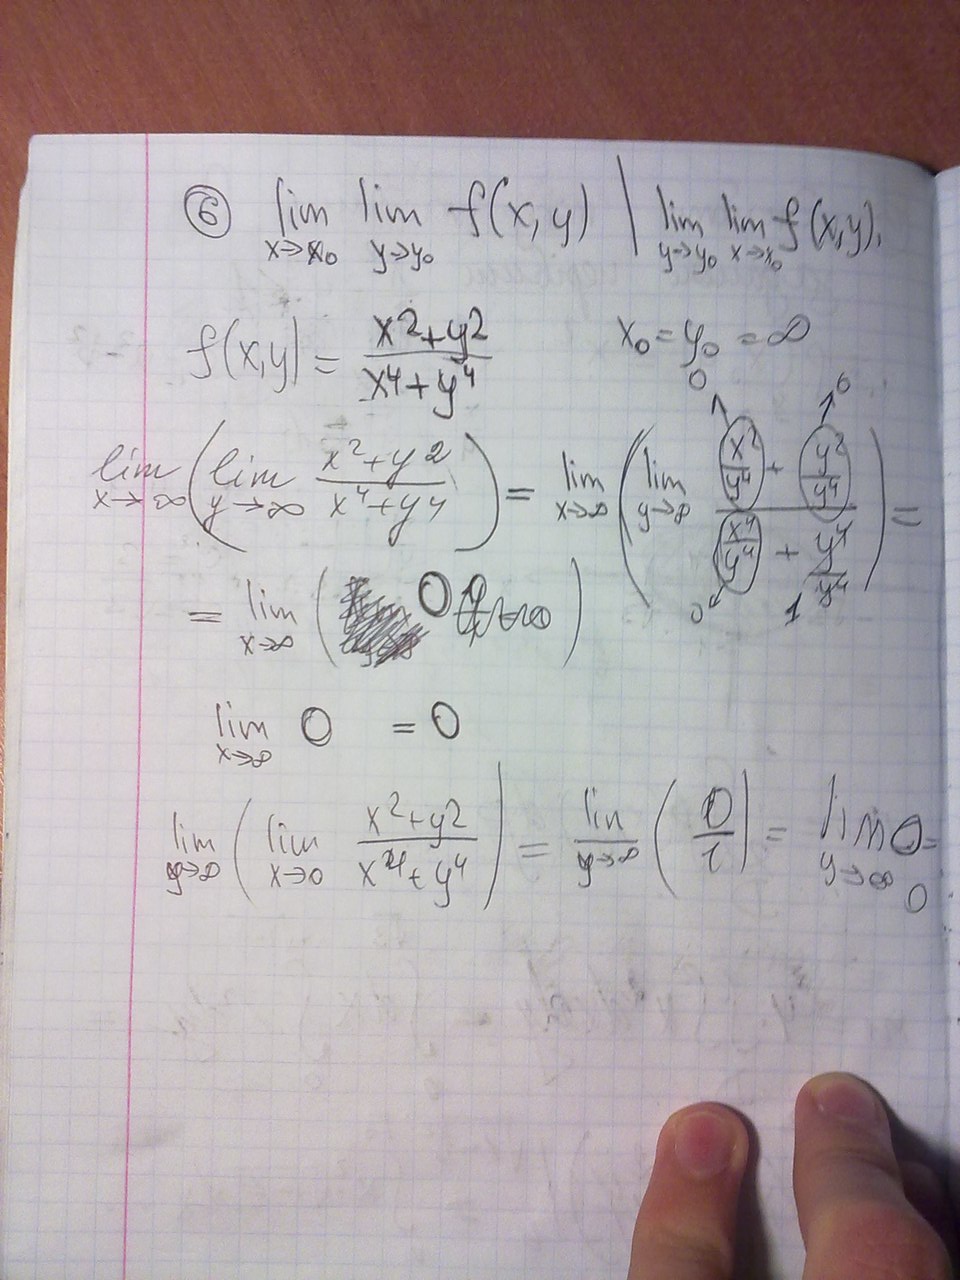 ⑥ lim x→x₀ lim y→y₀ f(x,y) | lim y→y₀ lim x→x₀ f(x,y).
f(x,y) = (x²+y²)/(x⁴+y⁴) x₀ = y₀ = ∞
lim x→∞ (lim y→∞ (x²+y²)/(x⁴+y⁴)) = lim x→∞ (lim y→∞ (x²/y⁴ →0 + y²/y⁴ →0)/(x⁴/y⁴ →0 + y⁴/y⁴ 1)) =
= lim x→∞ (0)
lim x→∞ 0 = 0
lim y→∞ (lim x→0 (x²+y²)/(x⁴+y⁴)) = lim y→∞ (0/1) = lim y→∞ 0 = 0